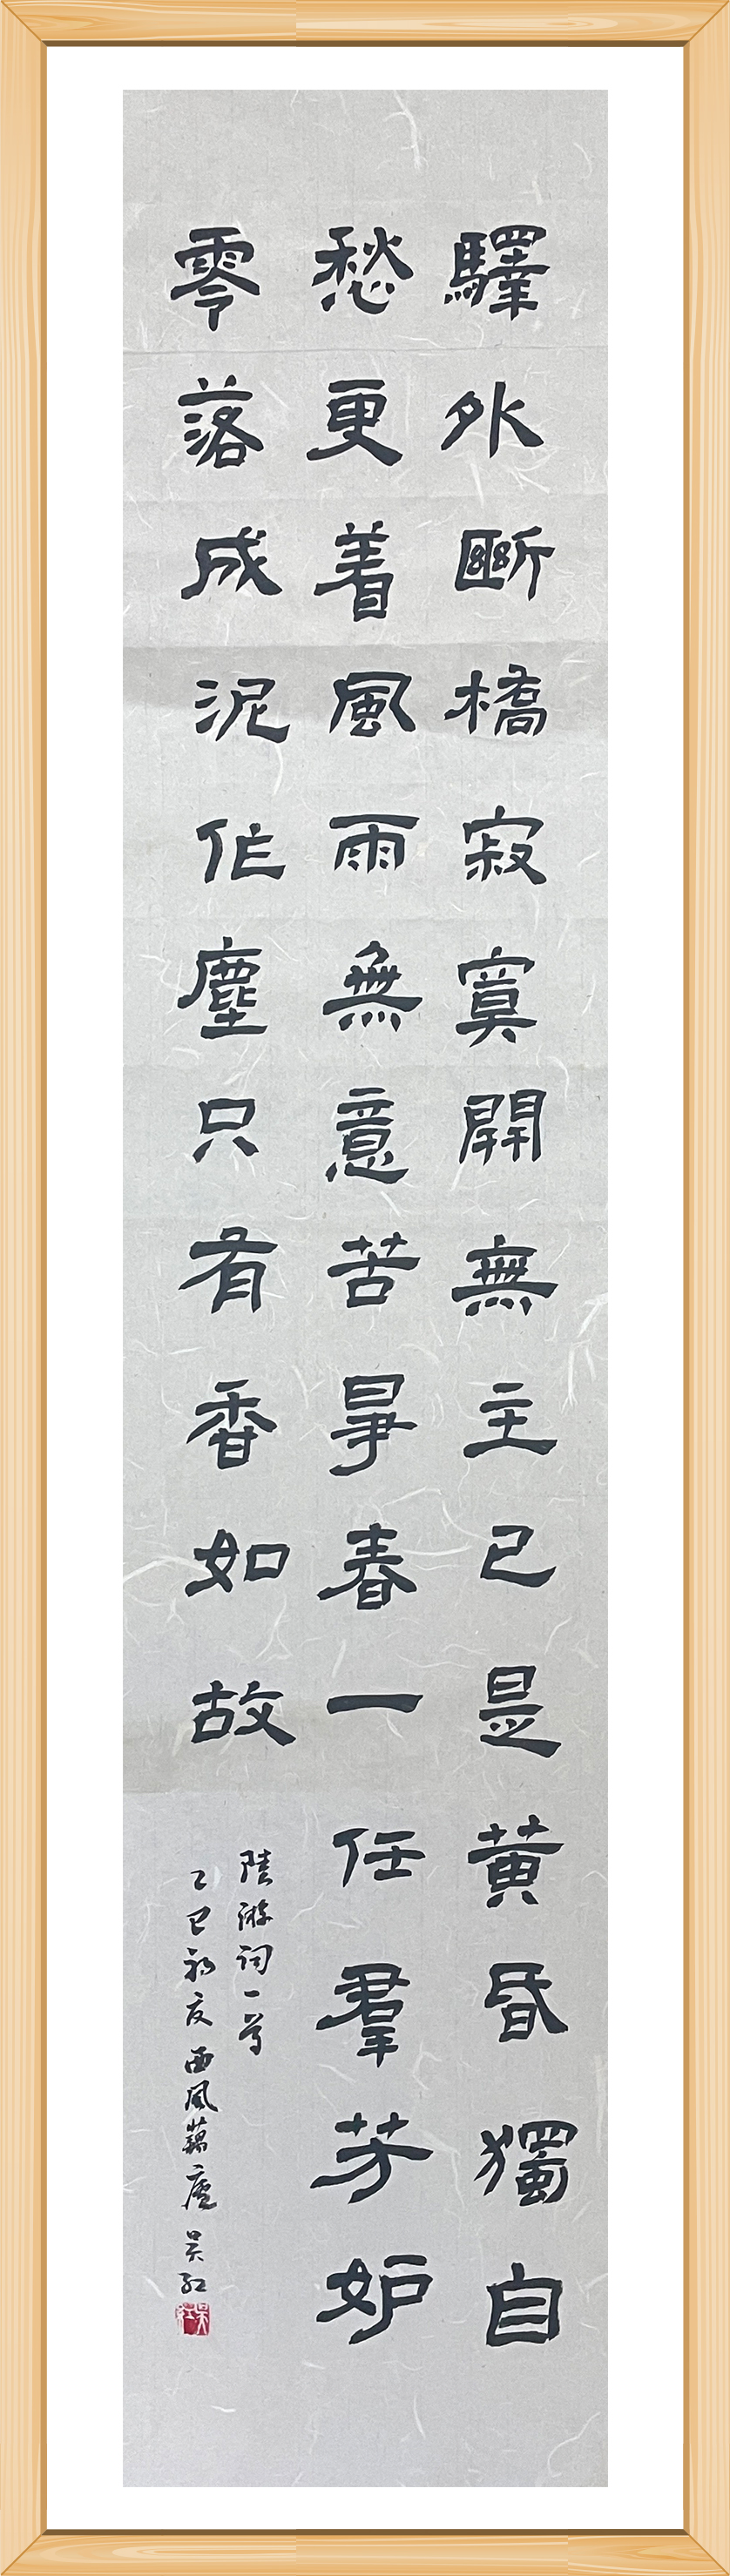 驛外斷橋寂寞開無主已是黄昏獨自
愁更着風雨無意苦爭春一任羣芳妒
零落成泥作塵只有香如故
陸游詞一首
乙巳初夏西風藕廬吴紅